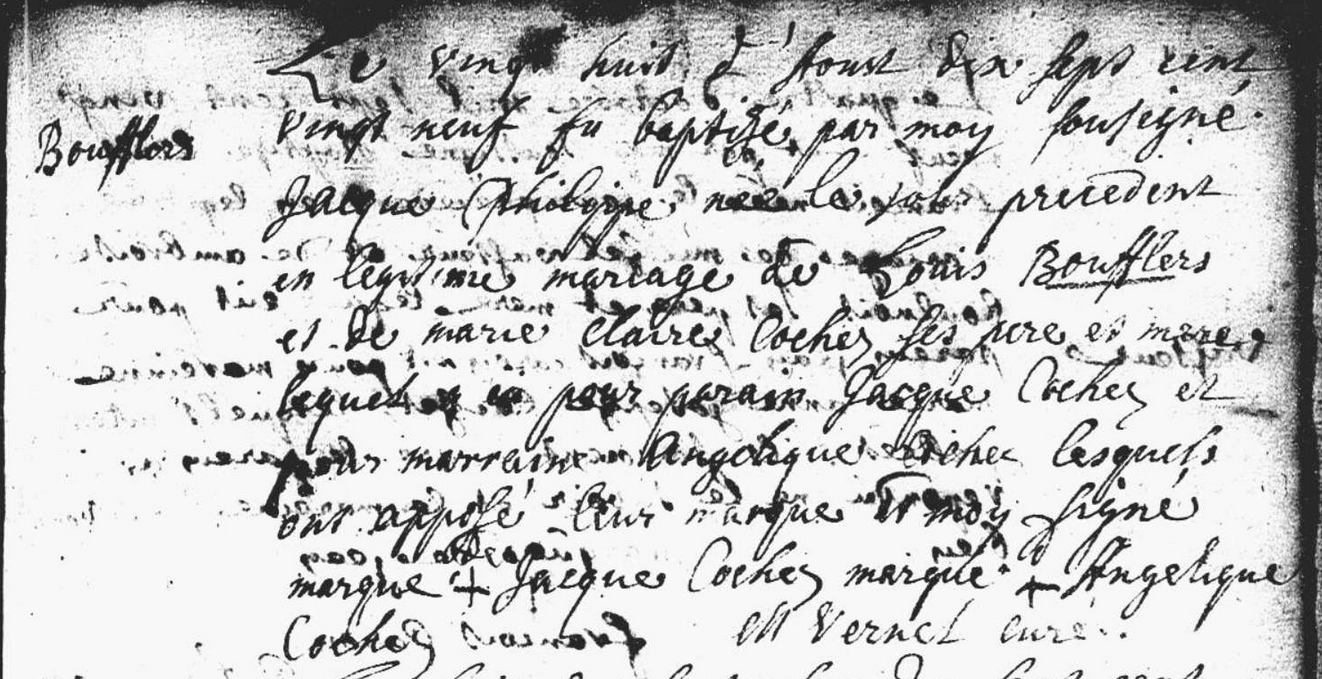 Boufflers
Le vingt huit d'Aoust dix sept cent
vingt neuf fu baptisé par moy sousigné
Jacque Philippe né le jour precedent
en legitime mariage de Louis Boufflers
et de marie claire Cochez ses pere et mere
lequel a eu pour parain Jacque Cochez et
pour marreine Angelique Cochez lesquels
ont apposé leur marque et moy signé
marque + Jacque Cochez marque + Angelique
Cochez Vernel curé.